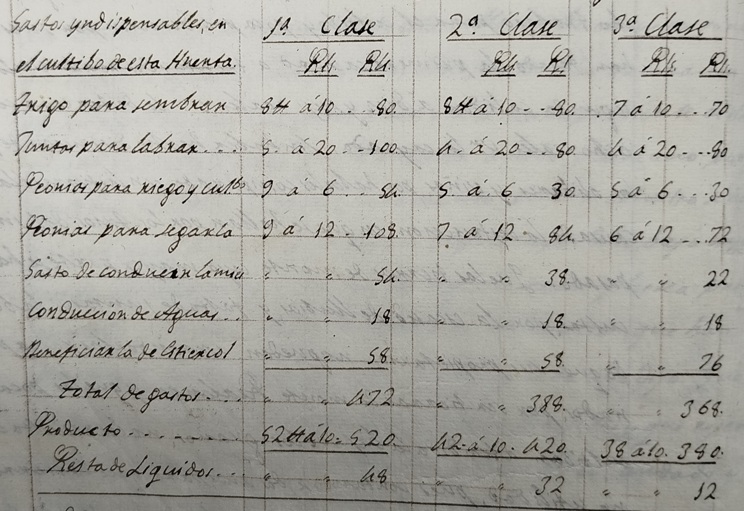 Gastos yndispensables en 1ª Clase 2ª Clase 3ª Clase
el cultibo de esta Huerta. Rs. Rs. Rs. Rs. Rs. Rs.
Trigo para sembrar 8H á 10.. 80. 8H á 10.. 80. 7 á 10.. 70
Juntas para labrar... 5 á 20.. 100. 4 á 20.. 80 4 á 20... 80
Peonias para riego y cultbo 9 á 6. 54. 5 á 6 30. 5 á 6... 30
Peonias para segarla 9 á 12. 108. 7 á 12 84. 6 á 12... 72
Gasto de conducir la mies " " 54. " " 38. " 22
Conduccion de Aguas.. " " 18 " " 18. " " 18
Beneficiarla de Estiercol " " 58. " " 58. " " 76
Total de gastos... " " 472 " " 388. " " 368.
Producto.......... 52H á 10. 520. 42 á 10. 420. 38 á 10. 380.
Resta de Liquidos... " " 48 " " 32 " " 12